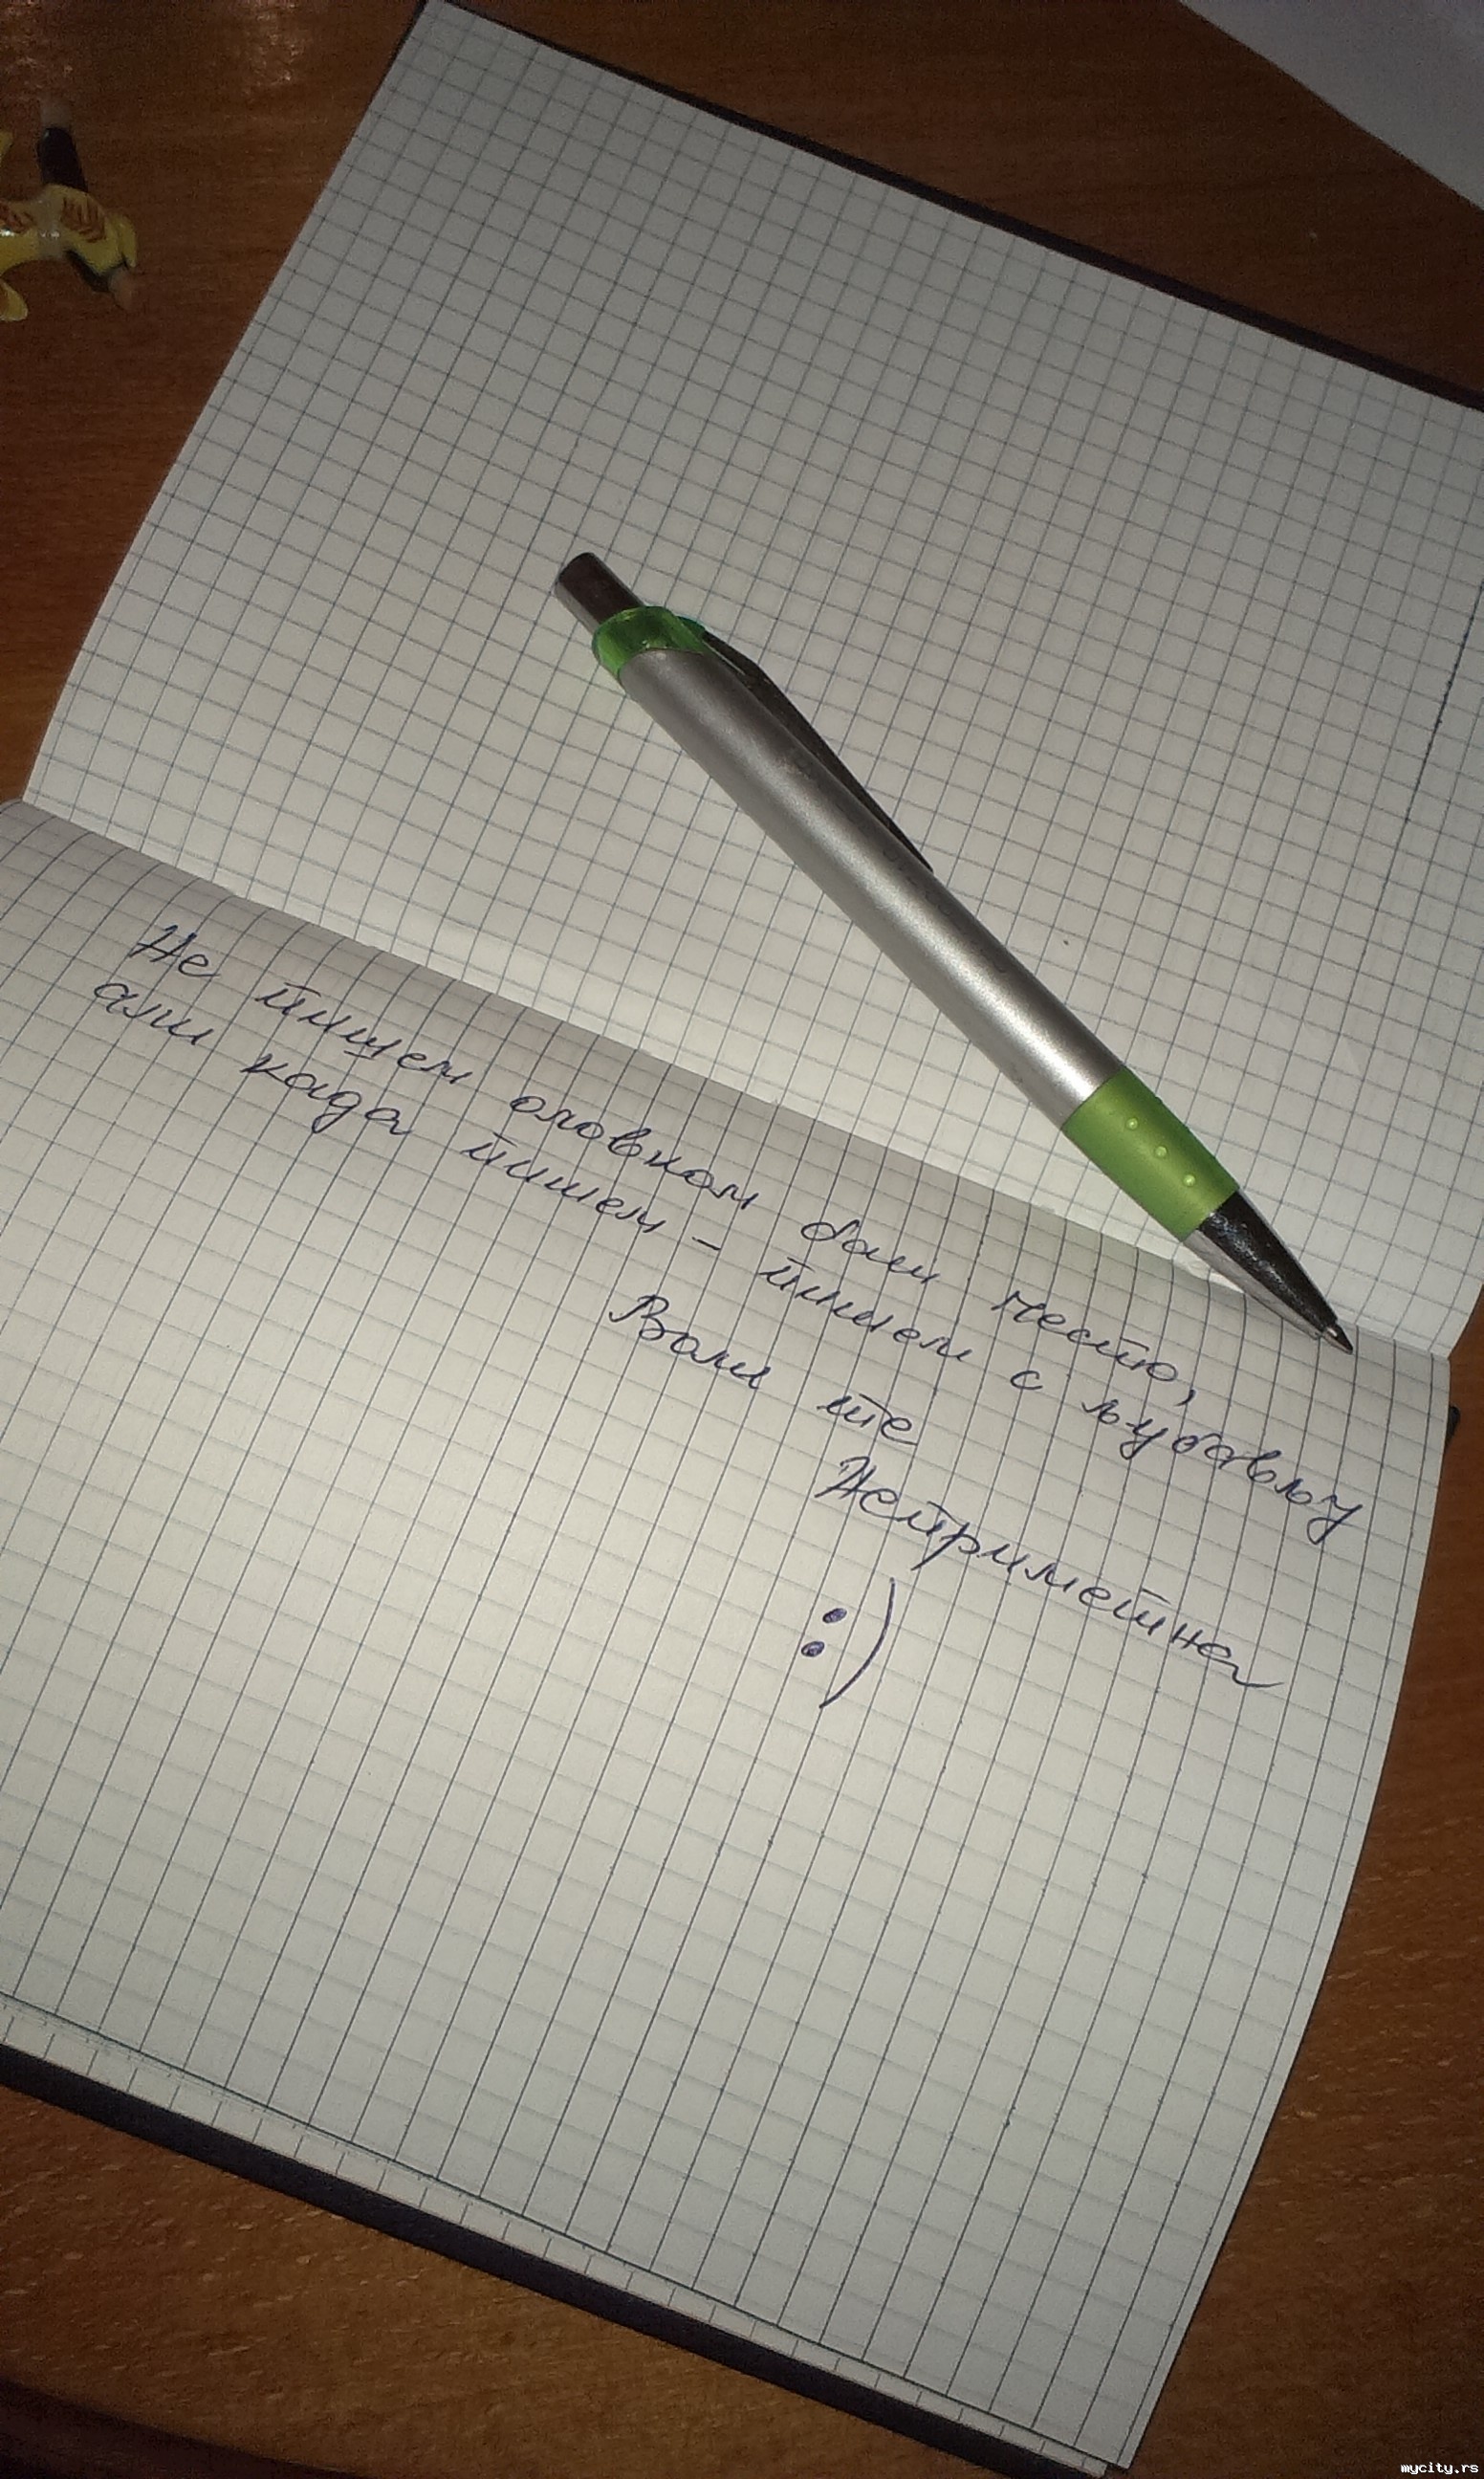 Не пишем оловком баш често,
али када пишем - пишем с љубављу
Воли те
Неприметна
:)
mycity.rs